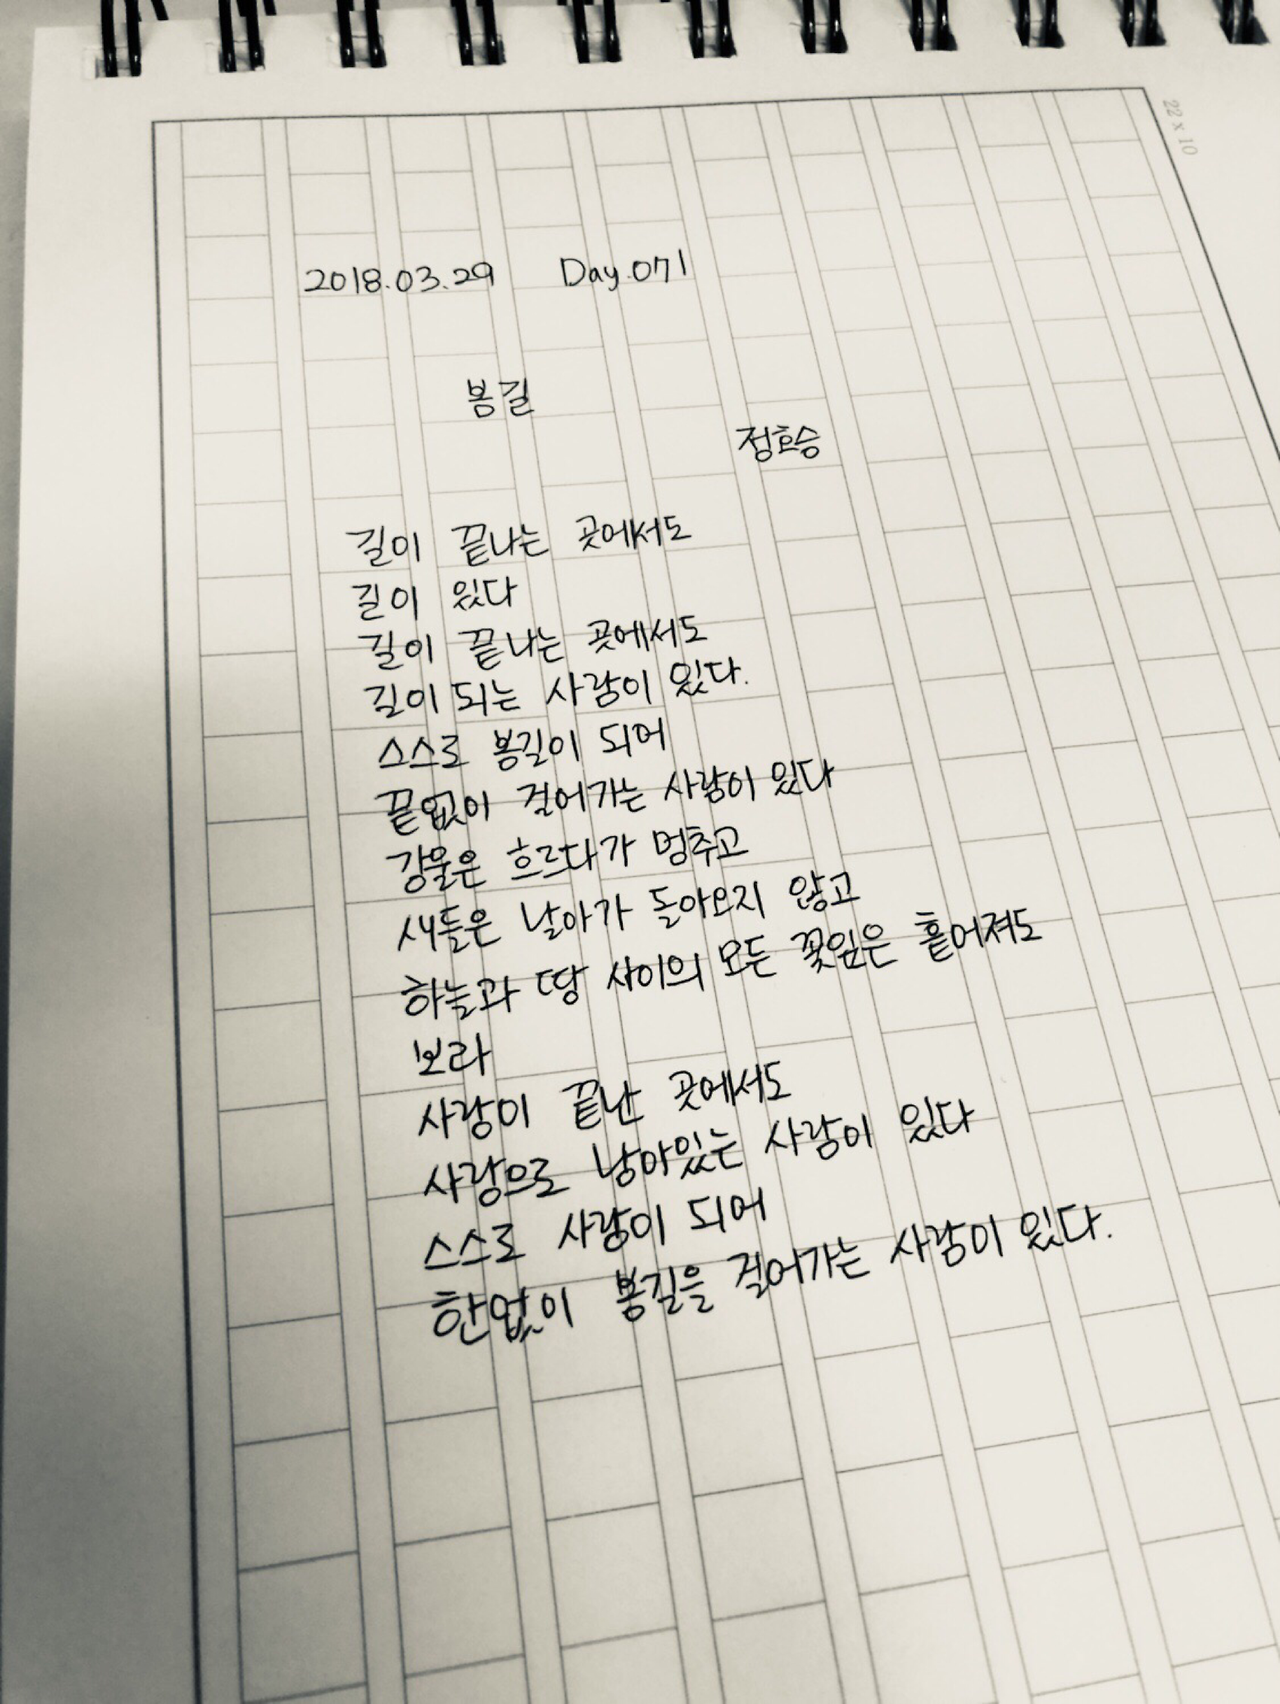 2018.03.29 Day.071
22 x 10
봄길
정호승
길이 끝나는 곳에서도
길이 있다
길이 끝나는 곳에서도
길이 되는 사람이 있다.
스스로 봄길이 되어
끝없이 걸어가는 사람이 있다
강물은 흐르다가 멈추고
새들은 날아가 돌아오지 않고
하늘과 땅 사이의 모든 꽃잎은 흩어져도
보라
사랑이 끝난 곳에서도
사랑으로 남아있는 사람이 있다
스스로 사랑이 되어
한없이 봄길을 걸어가는 사람이 있다.